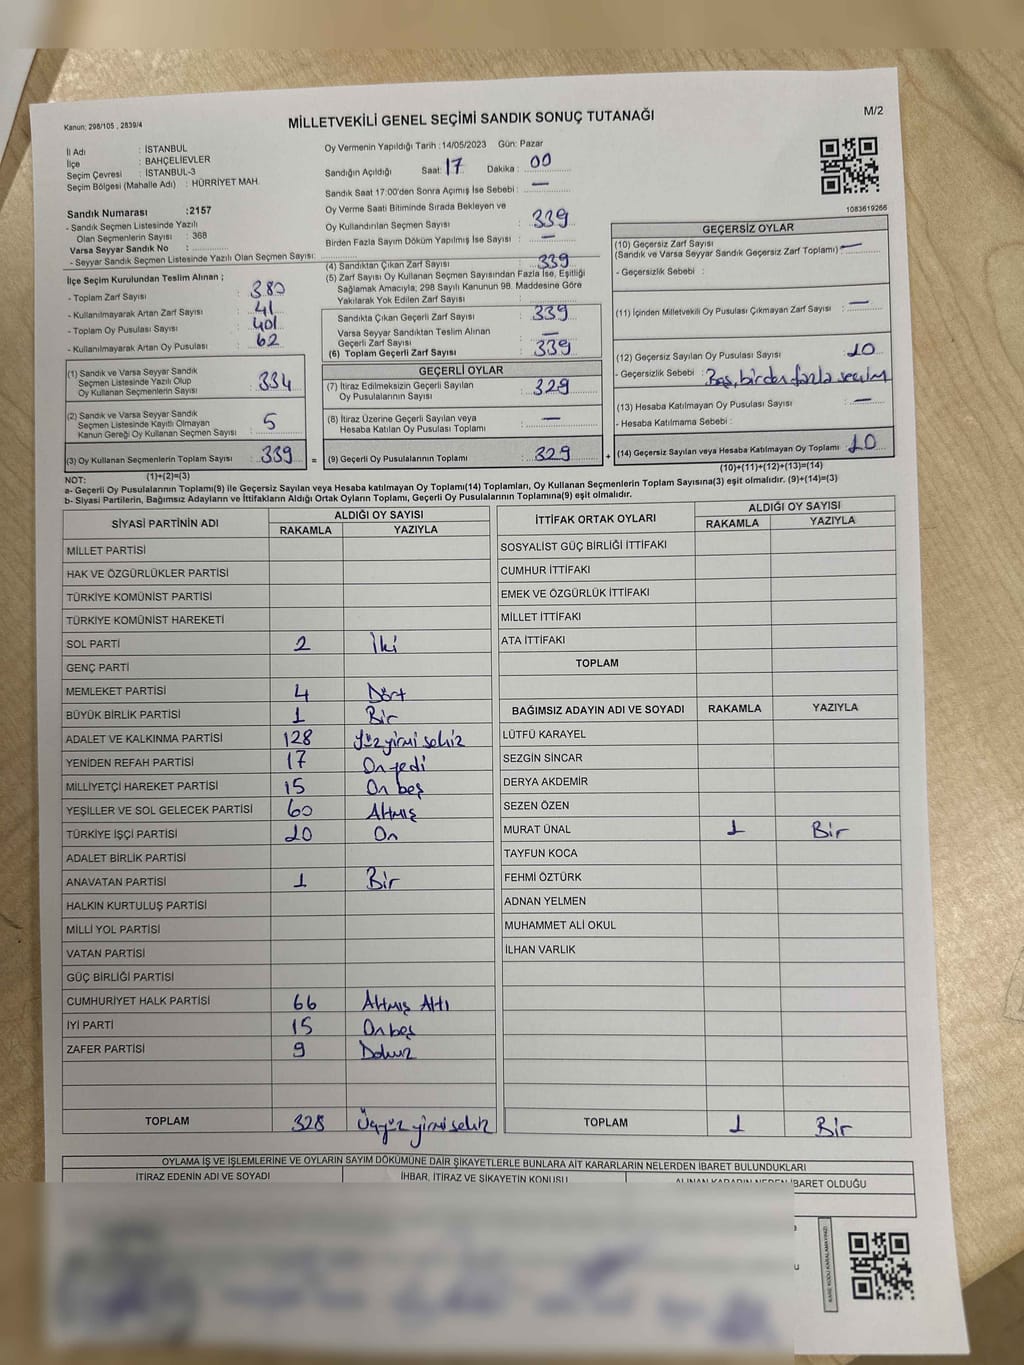 Kanun; 298/105 , 2839/4
MİLLETVEKİLİ GENEL SEÇİMİ SANDIK SONUÇ TUTANAĞI
M/2
İl Adı : İSTANBUL
İlçe : BAHÇELİEVLER
Seçim Çevresi : İSTANBUL-3
Seçim Bölgesi (Mahalle Adı) : HÜRRİYET MAH.
Sandık Numarası :2157
- Sandık Seçmen Listesinde Yazılı
Olan Seçmenlerin Sayısı : 368
Varsa Seyyar Sandık No :
- Seyyar Sandık Seçmen Listesinde Yazılı Olan Seçmen Sayısı:
İlçe Seçim Kurulundan Teslim Alınan ;
- Toplam Zarf Sayısı : 380
- Kullanılmayarak Artan Zarf Sayısı : 41
- Toplam Oy Pusulası Sayısı : 401
- Kullanılmayarak Artan Oy Pusulası : 62
(1) Sandık ve Varsa Seyyar Sandık
Seçmen Listesinde Yazılı Olup
Oy Kullanan Seçmenlerin Sayısı : 334
(2) Sandık ve Varsa Seyyar Sandık
Seçmen Listesinde Kayıtlı Olmayan
Kanun Gereği Oy Kullanan Seçmen Sayısı : 5
(3) Oy Kullanan Seçmenlerin Toplam Sayısı : 339
(1)+(2)=(3)
Oy Vermenin Yapıldığı Tarih :14/05/2023 Gün: Pazar
Sandığın Açıldığı Saat: 17 Dakika : 00
Sandık Saat 17:00'den Sonra Açımış İse Sebebi : —
Oy Verme Saati Bitiminde Sırada Bekleyen ve
Oy Kullandırılan Seçmen Sayısı : 339
Birden Fazla Sayım Döküm Yapılmış İse Sayısı : —
(4) Sandıktan Çıkan Zarf Sayısı : 339
(5) Zarf Sayısı Oy Kullanan Seçmen Sayısından Fazla İse, Eşitliği
Sağlamak Amacıyla; 298 Sayılı Kanunun 98. Maddesine Göre
Yakılarak Yok Edilen Zarf Sayısı :
Sandıkta Çıkan Geçerli Zarf Sayısı : 339
Varsa Seyyar Sandıktan Teslim Alınan
Geçerli Zarf Sayısı : —
(6) Toplam Geçerli Zarf Sayısı : 339
GEÇERLİ OYLAR
(7) İtiraz Edilmeksizin Geçerli Sayılan
Oy Pusulasının Sayısı : 329
(8) İtiraz Üzerine Geçerli Sayılan veya
Hesaba Katılan Oy Pusulası Toplamı : —
= (9) Geçerli Oy Pusulalarının Toplamı : 329 +
1083619266
GEÇERSİZ OYLAR
(10) Geçersiz Zarf Sayısı : —
(Sandık ve Varsa Seyyar Sandık Geçersiz Zarf Toplamı)
- Geçersizlik Sebebi :
(11) İçinden Milletvekili Oy Pusulası Çıkmayan Zarf Sayısı : —
(12) Geçersiz Sayılan Oy Pusulası Sayısı : 10
- Geçersizlik Sebebi : Boş, birden fazla seçim
(13) Hesaba Katılmayan Oy Pusulası Sayısı : —
- Hesaba Katılmama Sebebi :
(14) Geçersiz Sayılan veya Hesaba Katılmayan Oy Toplamı : 10
(10)+(11)+(12)+(13)=(14)
NOT:
a- Geçerli Oy Pusulalarının Toplamı(9) ile Geçersiz Sayılan veya Hesaba katılmayan Oy Toplamı(14) Toplamları, Oy Kullanan Seçmenlerin Toplam Sayısına(3) eşit olmalıdır. (9)+(14)=(3)
b- Siyasi Partilerin, Bağımsız Adayların ve İttifakların Aldığı Ortak Oyların Toplamı, Geçerli Oy Pusulalarının Toplamına(9) eşit olmalıdır.
SİYASİ PARTİNİN ADI ALDIĞI OY SAYISI
RAKAMLA YAZIYLA
MİLLET PARTİSİ
HAK VE ÖZGÜRLÜKLER PARTİSİ
TÜRKİYE KOMÜNİST PARTİSİ
TÜRKİYE KOMÜNİST HAREKETİ
SOL PARTİ 2 İki
GENÇ PARTİ
MEMLEKET PARTİSİ 4 Dört
BÜYÜK BİRLİK PARTİSİ 1 Bir
ADALET VE KALKINMA PARTİSİ 128 Yüz yirmi sekiz
YENİDEN REFAH PARTİSİ 17 On yedi
MİLLİYETÇİ HAREKET PARTİSİ 15 On beş
YEŞİLLER VE SOL GELECEK PARTİSİ 60 Altmış
TÜRKİYE İŞÇİ PARTİSİ 10 On
ADALET BİRLİK PARTİSİ
ANAVATAN PARTİSİ 1 Bir
HALKIN KURTULUŞ PARTİSİ
MİLLİ YOL PARTİSİ
VATAN PARTİSİ
GÜÇ BİRLİĞİ PARTİSİ
CUMHURİYET HALK PARTİSİ 66 Altmış Altı
İYİ PARTİ 15 On beş
ZAFER PARTİSİ 9 Dokuz
TOPLAM 328 Üçyüz yirmi sekiz
İTTİFAK ORTAK OYLARI ALDIĞI OY SAYISI
RAKAMLA YAZIYLA
SOSYALİST GÜÇ BİRLİĞİ İTTİFAKI
CUMHUR İTTİFAKI
EMEK VE ÖZGÜRLÜK İTTİFAKI
MİLLET İTTİFAKI
ATA İTTİFAKI
TOPLAM
BAĞIMSIZ ADAYIN ADI VE SOYADI RAKAMLA YAZIYLA
LÜTFÜ KARAYEL
SEZGİN SİNCAR
DERYA AKDEMİR
SEZEN ÖZEN
MURAT ÜNAL 1 Bir
TAYFUN KOCA
FEHMİ ÖZTÜRK
ADNAN YELMEN
MUHAMMET ALİ OKUL
İLHAN VARLIK
TOPLAM 1 Bir
OYLAMA İŞ VE İŞLEMLERİNE VE OYLARIN SAYIM DÖKÜMÜNE DAİR ŞİKAYETLERLE BUNLARA AİT KARARLARIN NELERDEN İBARET BULUNDUKLARI
İTİRAZ EDENİN ADI VE SOYADI İHBAR, İTİRAZ VE ŞİKAYETİN KONUSU ALINAN KARARIN NEDEN İBARET OLDUĞU
KARE KODU KARALAMAYINIZ